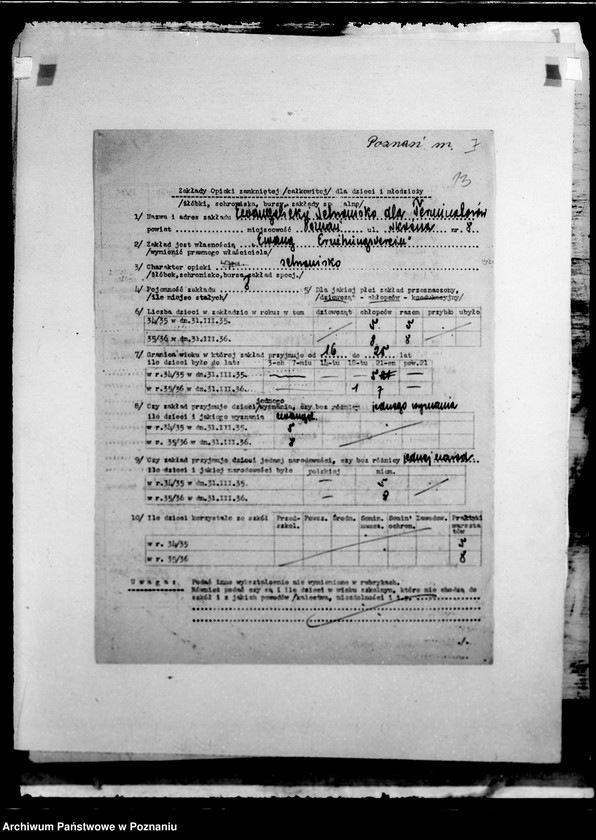 Poznań m. 7
13
Zakłady Opieki zamkniętej /całkowitej/ dla dzieci i młodzieży
/żłóbki, schroniska, bursy, zakłady specjalne/
1/ Nazwa i adres zakładu Ewangelicky Schronisko dla Terminatorów
powiat miejscowość Poznań ul. nr. 8
2/ Zakład jest własnością Ewang. Erziehungsverein"
/wymienić prawnego właściciela/
3/ Charakter opieki schronisko
/żłóbek, schronisko, bursa, zakład specj./
4/ Pojemność zakładu 8 5/ Dla jakiej płci zakład przeznaczony,
/ile miejsc stałych/ /dziewcząt - chłopców - koedukacyjny/
6/ Liczba dzieci w zakładzie w roku: w tem dziewcząt chłopców razem przybło ubyło
34/35 w dn.31.III.35. 5 5
35/36 w dn.31.III.36. 8 8
7/ Granica wieku w której zakład przyjmuje od 16 do 25 lat
ile dzieci było do lat: 3-ch 7-miu 14-tu 18-tu 21-en pow.21
w r.34/35 w dn.31.III.35. 5
w r.35/36 w dn.31.III.36. 1 7
8/ Czy zakład przyjmuje dzieci jednego wyznania, czy bez różnicy jednego wyznania
ile dzieci i jakiego wyznania ewangel.
w r.34/35 w dn.31.III.35. 5
w r. 35/36 w dn.31.III.36. 8
9/ Czy zakład przyjmuje dzieci jednej narodowości, czy bez różnicy jednej narod.
ile dzieci i jakiej narodowości było polskiej niem.
w r.34/35 w dn.31.III.35. 5
w r.35/36 w dn.31.III.36. 8
10/ Ile dzieci korzystało ze szkół Przed-szkol. Powsz. Średn. Semin. naucz. Semin. ochron. Zawodow. Praktyki warszta tów
w r. 34/35 5
w r. 35/36 8
U w a g a : Podać inne wykształcenie nie wymienione w rubrykach.
Również podać czy są i ile dzieci w wieku szkolnym, które nie chodzą do
szkół i z jakich powodów /kalectwa, niezdolności i t.p.
Archiwum Państwowe w Poznaniu